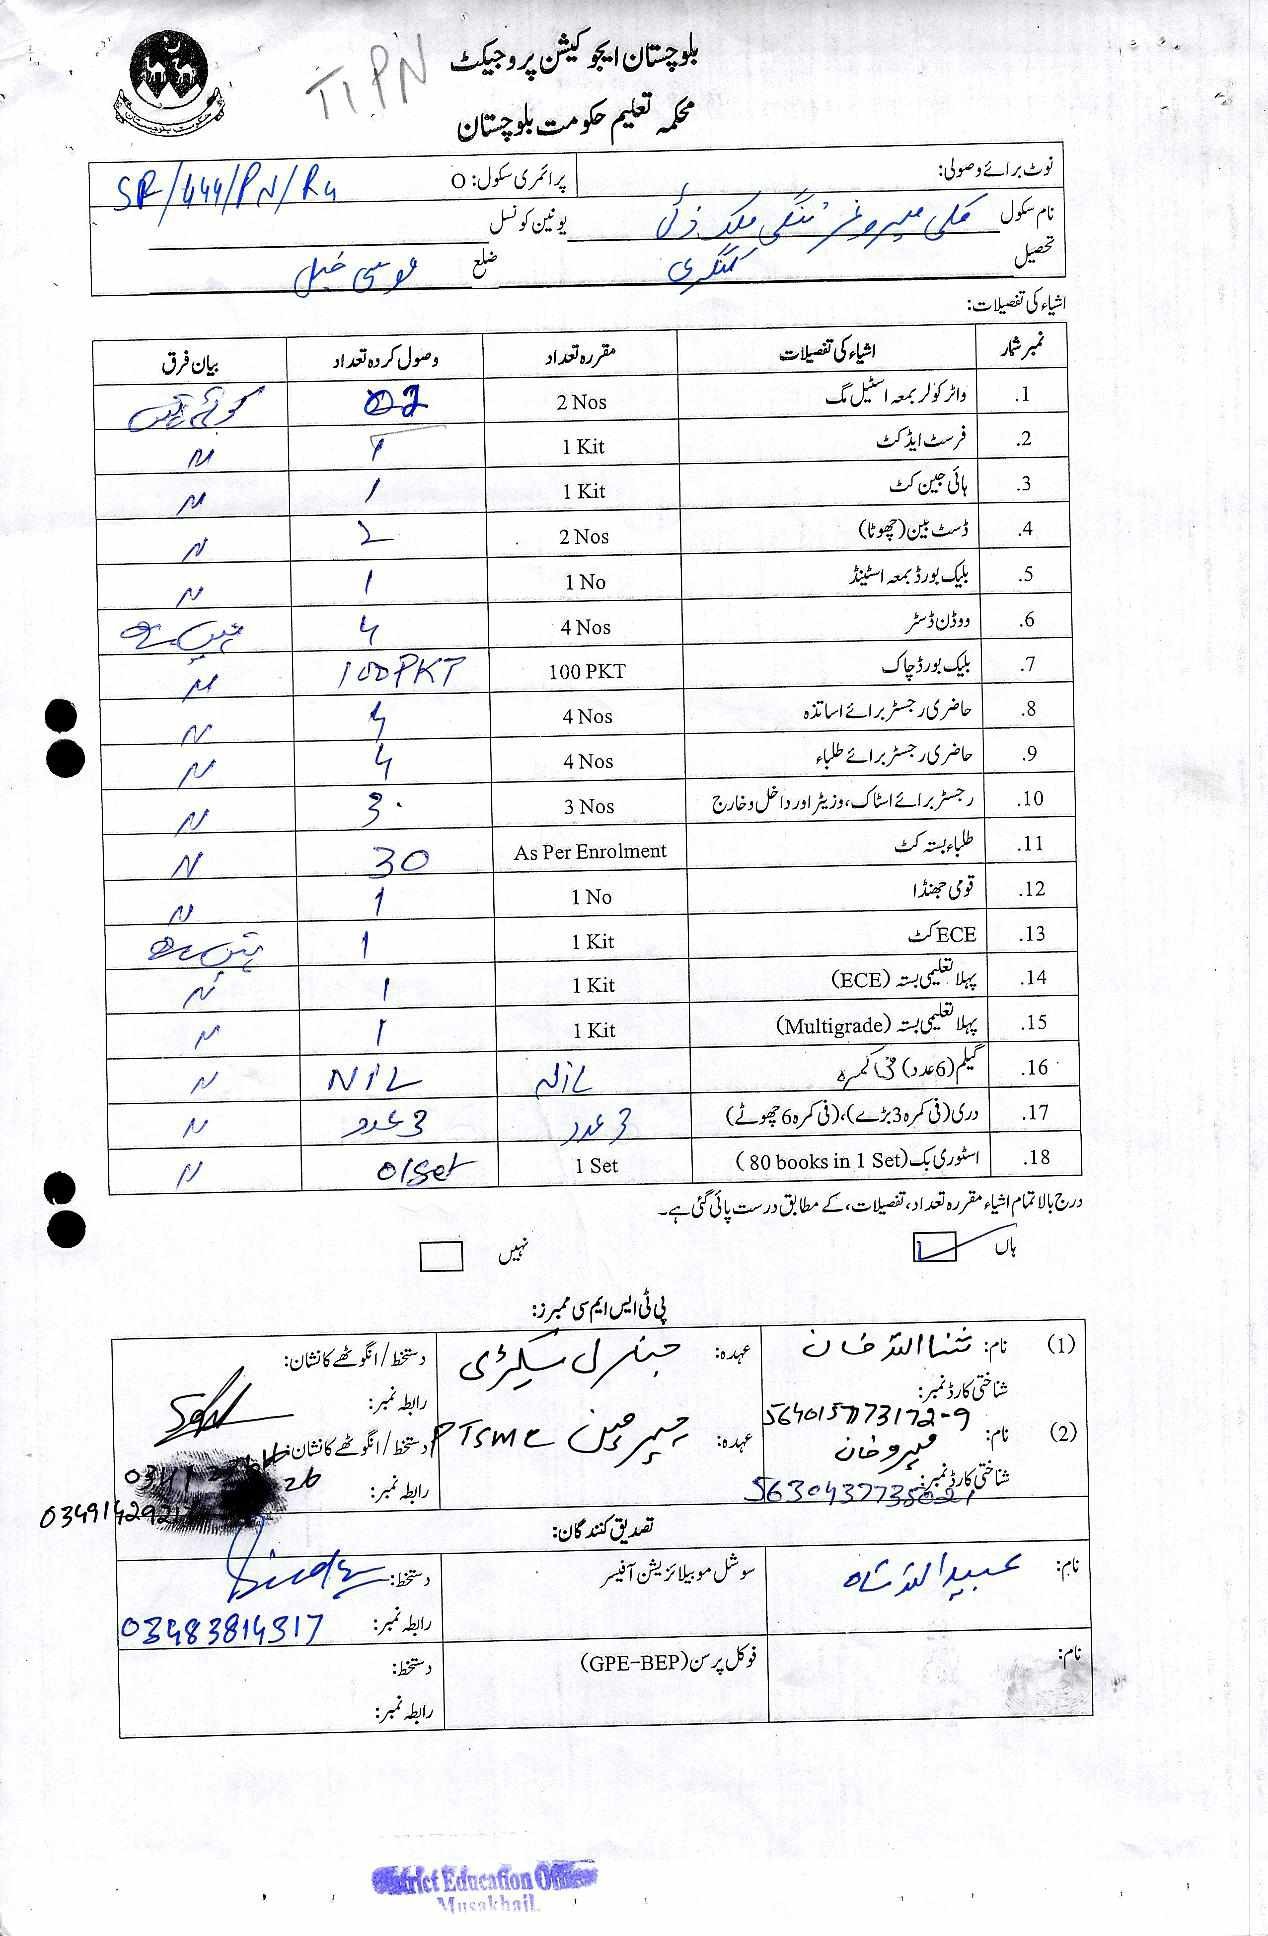 TIPN
بلوچستان ایجوکیشن پروجیکٹ
محکمہ تعلیم حکومت بلوچستان
نوٹ برائے وصولی:
پرائمری سکول: O SR/444/PN/R4
نام سکول کلی میرو غر
یونین کونسل
تحصیل کنگری ضلع موسیٰ خیل
اشیاء کی تفصیلات:
نمبر شمار اشیاء کی تفصیلات مقررہ تعداد وصول کردہ تعداد بیان فرق
1. واٹر کولر بمعہ اسٹیل مگ 2 Nos 02
2. فرسٹ ایڈ کٹ 1 Kit 1 N
3. ہائی جین کٹ 1 Kit 1 N
4. ڈسٹ بین (چھوٹا) 2 Nos 2 N
5. بلیک بورڈ بمعہ اسٹینڈ 1 No 1 N
6. ووڈن ڈسٹر 4 Nos 4 نہیں ہے
7. بلیک بورڈ چاک 100 PKT 100PKT N
8. حاضری رجسٹر برائے اساتذہ 4 Nos 4 N
9. حاضری رجسٹر برائے طلباء 4 Nos 4 N
10. رجسٹر برائے اسٹاک، وزیٹر اور داخل و خارج 3 Nos 3 N
11. طلباء بستہ کٹ As Per Enrolment 30 N
12. قومی جھنڈا 1 No 1 N
13. ECE کٹ 1 Kit 1 نہیں ہے
14. پہلا تعلیمی بستہ (ECE) 1 Kit 1 N
15. پہلا تعلیمی بستہ (Multigrade) 1 Kit 1 N
16. گیلم (6 عدد) فی کمرہ NIL NIL N
17. دری (فی کمرہ 3 بڑے)، (فی کمرہ 6 چھوٹے) 3 عدد 3 عدد N
18. اسٹوری بک (80 books in 1 Set) 1 Set 01Set N
درج بالا تمام اشیاء مقررہ تعداد، تفصیلات، کے مطابق درست پائی گئی ہے۔
ہاں نہیں
پی ٹی ایس ایم سی ممبرز:
(1) نام: ثنااللہ خان عہدہ: جنرل سیکرٹری دستخط / انگوٹھے کا نشان:
شناختی کارڈ نمبر: رابطہ نمبر:
(2) نام: میرو خان عہدہ: چیرمین PTSMC دستخط / انگوٹھے کا نشان:
شناختی کارڈ نمبر: رابطہ نمبر:
تصدیق کنندگان:
نام: عبیداللہ شاہ سوشل موبیلائزیشن آفیسر دستخط:
رابطہ نمبر: 03483814317
نام: فوکل پرسن (GPE-BEP) دستخط:
رابطہ نمبر:
District Education Officer
Musakhail